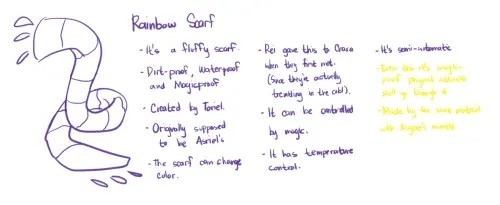 Rainbow Scarf
- It's a fluffy scarf.
- Dirt-proof, Waterproof
and Magicproof
- Created by Toriel.
- Originally supposed
to be Asriel's
- The scarf can change
color.
- Rei gave this to Chara
when they first met.
(Since they're actually
trembling in the cold).
- It can be controlled
by magic.
- It has temperature
control.
- It's semi-automatic
- magic-
proof
- Made by the same material
with Asgore's mantle